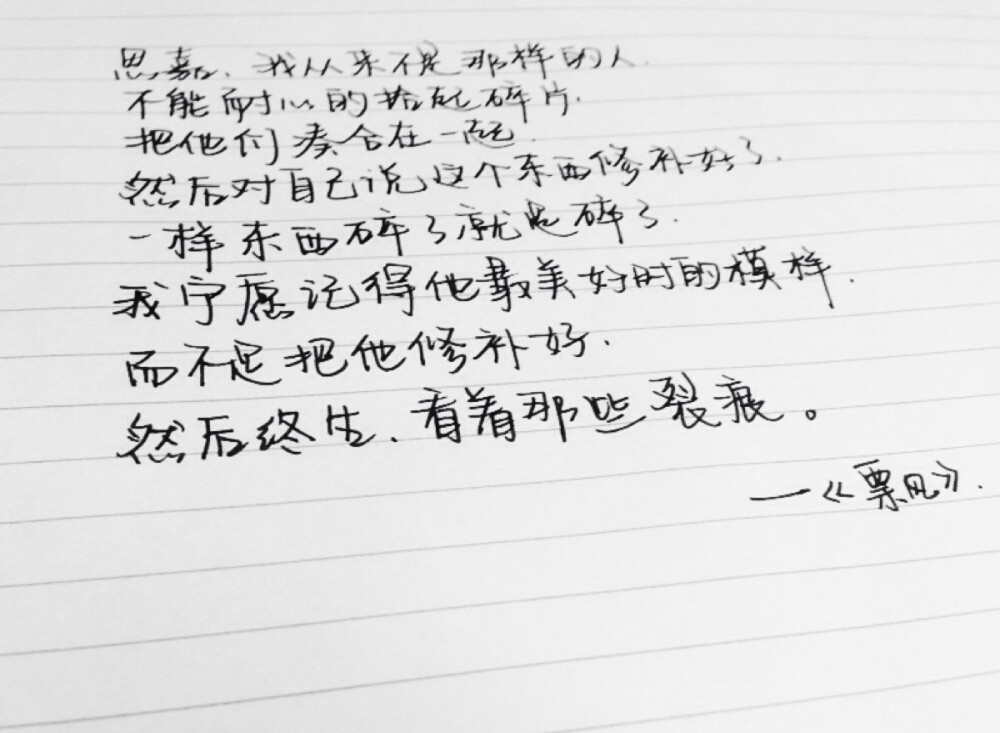 思嘉、我从来不是那样的人.
不能耐心的拾起碎片.
把他们凑合在一起.
然后对自己说这个东西修补好了.
一样东西碎了就是碎了.
我宁愿记得他最美好时的模样.
而不是把他修补好.
然后终生、看着那些裂痕。
—《票风》.